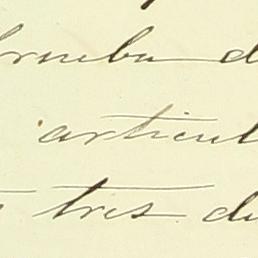 prueba d
articul
tres di